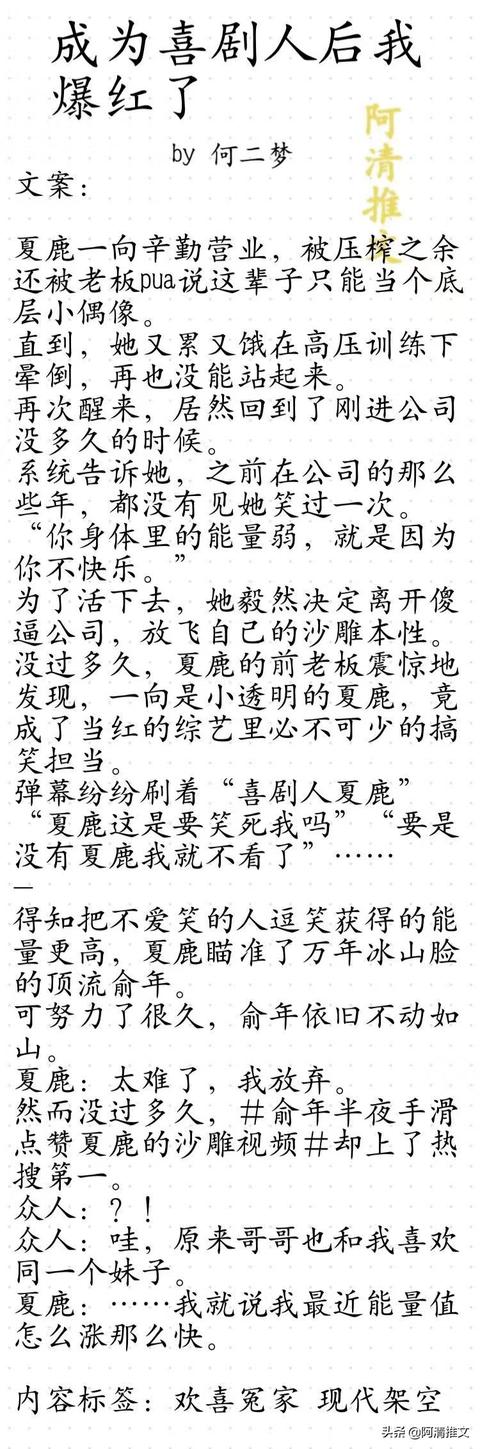 成为喜剧人后我
爆红了
by 何二梦
阿清推文
文案：
夏鹿一向辛勤营业，被压榨之余
还被老板pua说这辈子只能当个底
层小偶像。
直到，她又累又饿在高压训练下
晕倒，再也没能站起来。
再次醒来，居然回到了刚进公司
没多久的时候。
系统告诉她，之前在公司的那么
些年，都没有见她笑过一次。
“你身体里的能量弱，就是因为
你不快乐。”
为了活下去，她毅然决定离开傻
逼公司，放飞自己的沙雕本性。
没过多久，夏鹿的前老板震惊地
发现，一向是小透明的夏鹿，竟
成了当红的综艺里必不可少的搞
笑担当。
弹幕纷纷刷着“喜剧人夏鹿”
“夏鹿这是要笑死我吗”“要是
没有夏鹿我就不看了”……
—
得知把不爱笑的人逗笑获得的能
量更高，夏鹿瞄准了万年冰山脸
的顶流俞年。
可努力了很久，俞年依旧不动如
山。
夏鹿：太难了，我放弃。
然而没过多久，＃俞年半夜手滑
点赞夏鹿的沙雕视频＃却上了热
搜第一。
众人：？！
众人：哇，原来哥哥也和我喜欢
同一个妹子。
夏鹿：……我就说我最近能量值
怎么涨那么快。
内容标签：欢喜冤家 现代架空
头条 @阿清推文